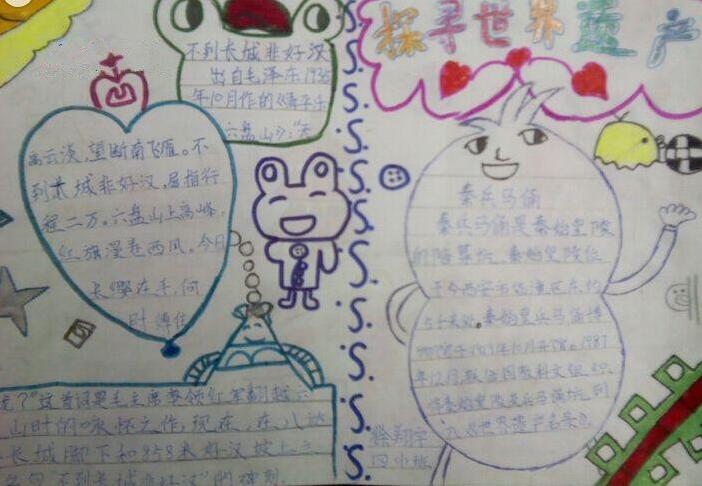 探寻世界遗产
不到长城非好汉
出自毛泽东1935
年10月作的《清平乐
六盘山》:“天
高云淡,望断南飞雁。不
到长城非好汉,屈指行
程二万。六盘山上高峰,
红旗漫卷西风。今日
长缨在手,何
时缚住
龙?”这首词是毛主席率领红军翻越六
山时的咏怀之作,现在,在八达
长城脚下和858米好汉坡上立
“不到长城非好汉”的碑刻
秦兵马俑
秦兵马俑是秦始皇陵
的陪葬坑,秦始皇陵位
于今西安市临潼区东约
秦始皇兵马俑博
物馆于1979年10月开馆。1987
年12月,联合国教科文组织
将秦始皇陵及兵马俑坑列
入《世界遗产名录》。
翔宇
四
班
S.
S.
S.
S.
S.
S.
S.
S.
S.
S.
S.